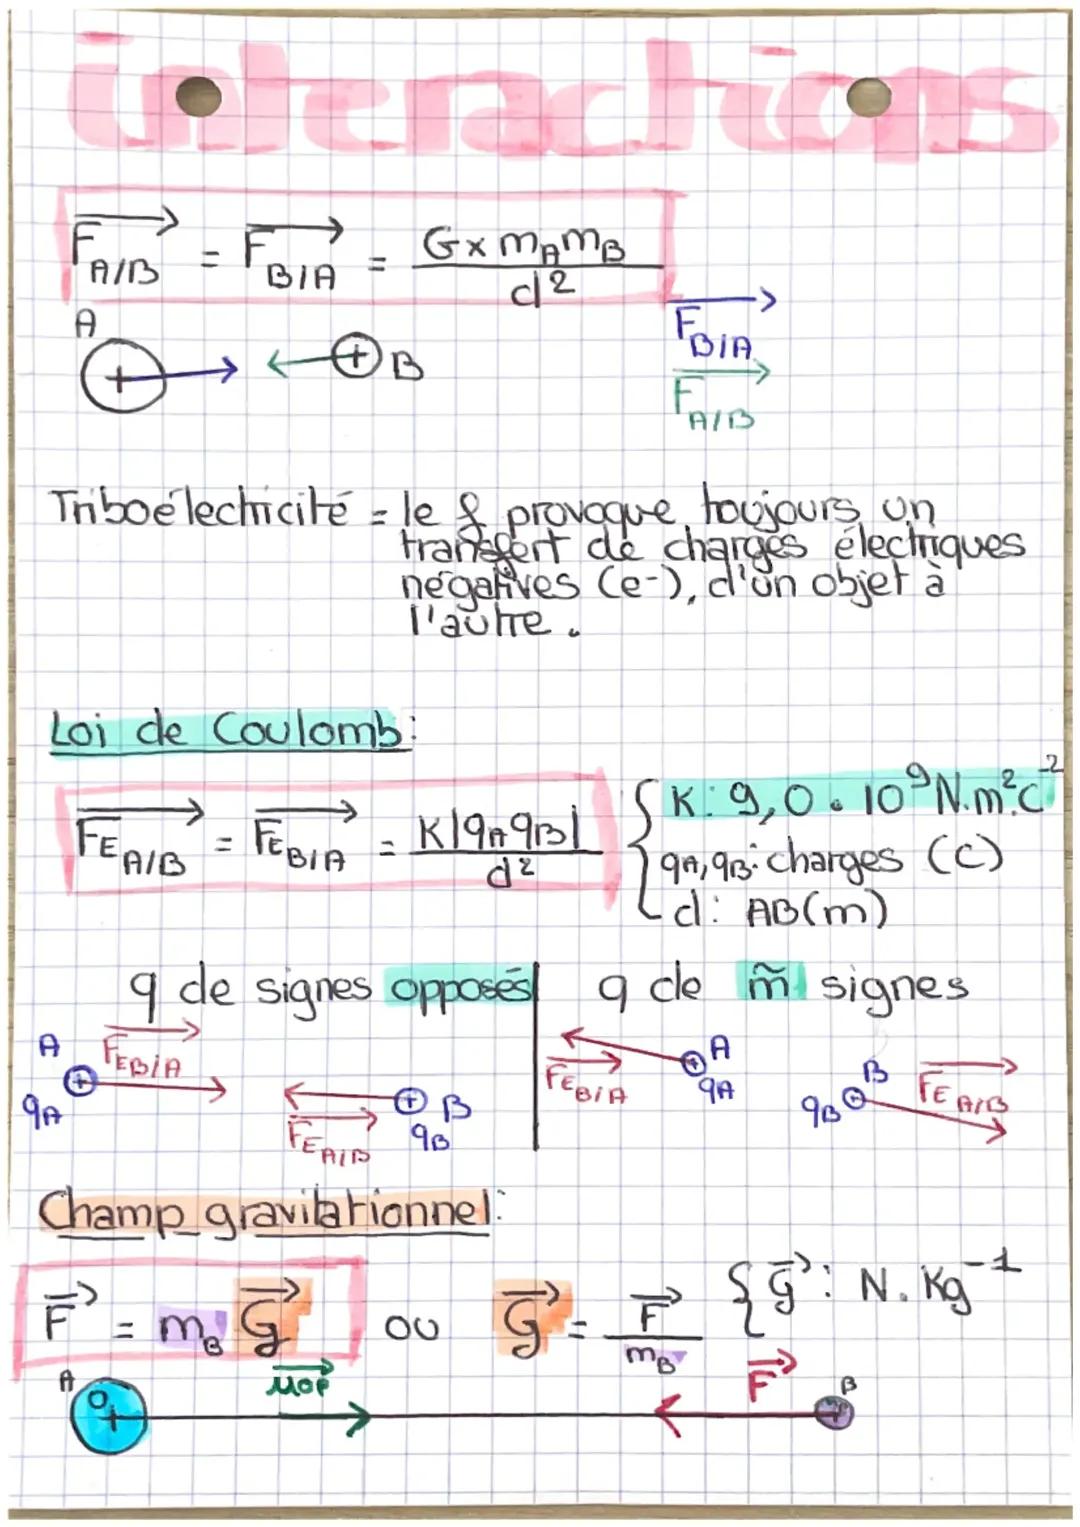 interactions
F⃗A/B = F⃗B/A = G x mA mB / d²
A
B
F⃗B/A
F⃗A/B
Triboélectricité = le f provoque toujours un
transfert de charges électriques
négatives (e-), d'un objet à
l'autre.
Loi de Coulomb:
F⃗E A/B = F⃗E B/A = K|qA qB| / d²
K: 9,0 . 10⁹ N.m².C⁻²
qA, qB: charges (C)
d: AB(m)
q de signes opposés
q de m̃ signes
A F⃗E B/A
qA
F⃗E A/B
B
qB
F⃗E B/A
A
qA
B
qB
F⃗E A/B
Champ gravitationnel:
F⃗ = mB G⃗ ou G⃗ = F⃗ / mB
G⃗: N. Kg⁻¹
A
O
F⃗
B